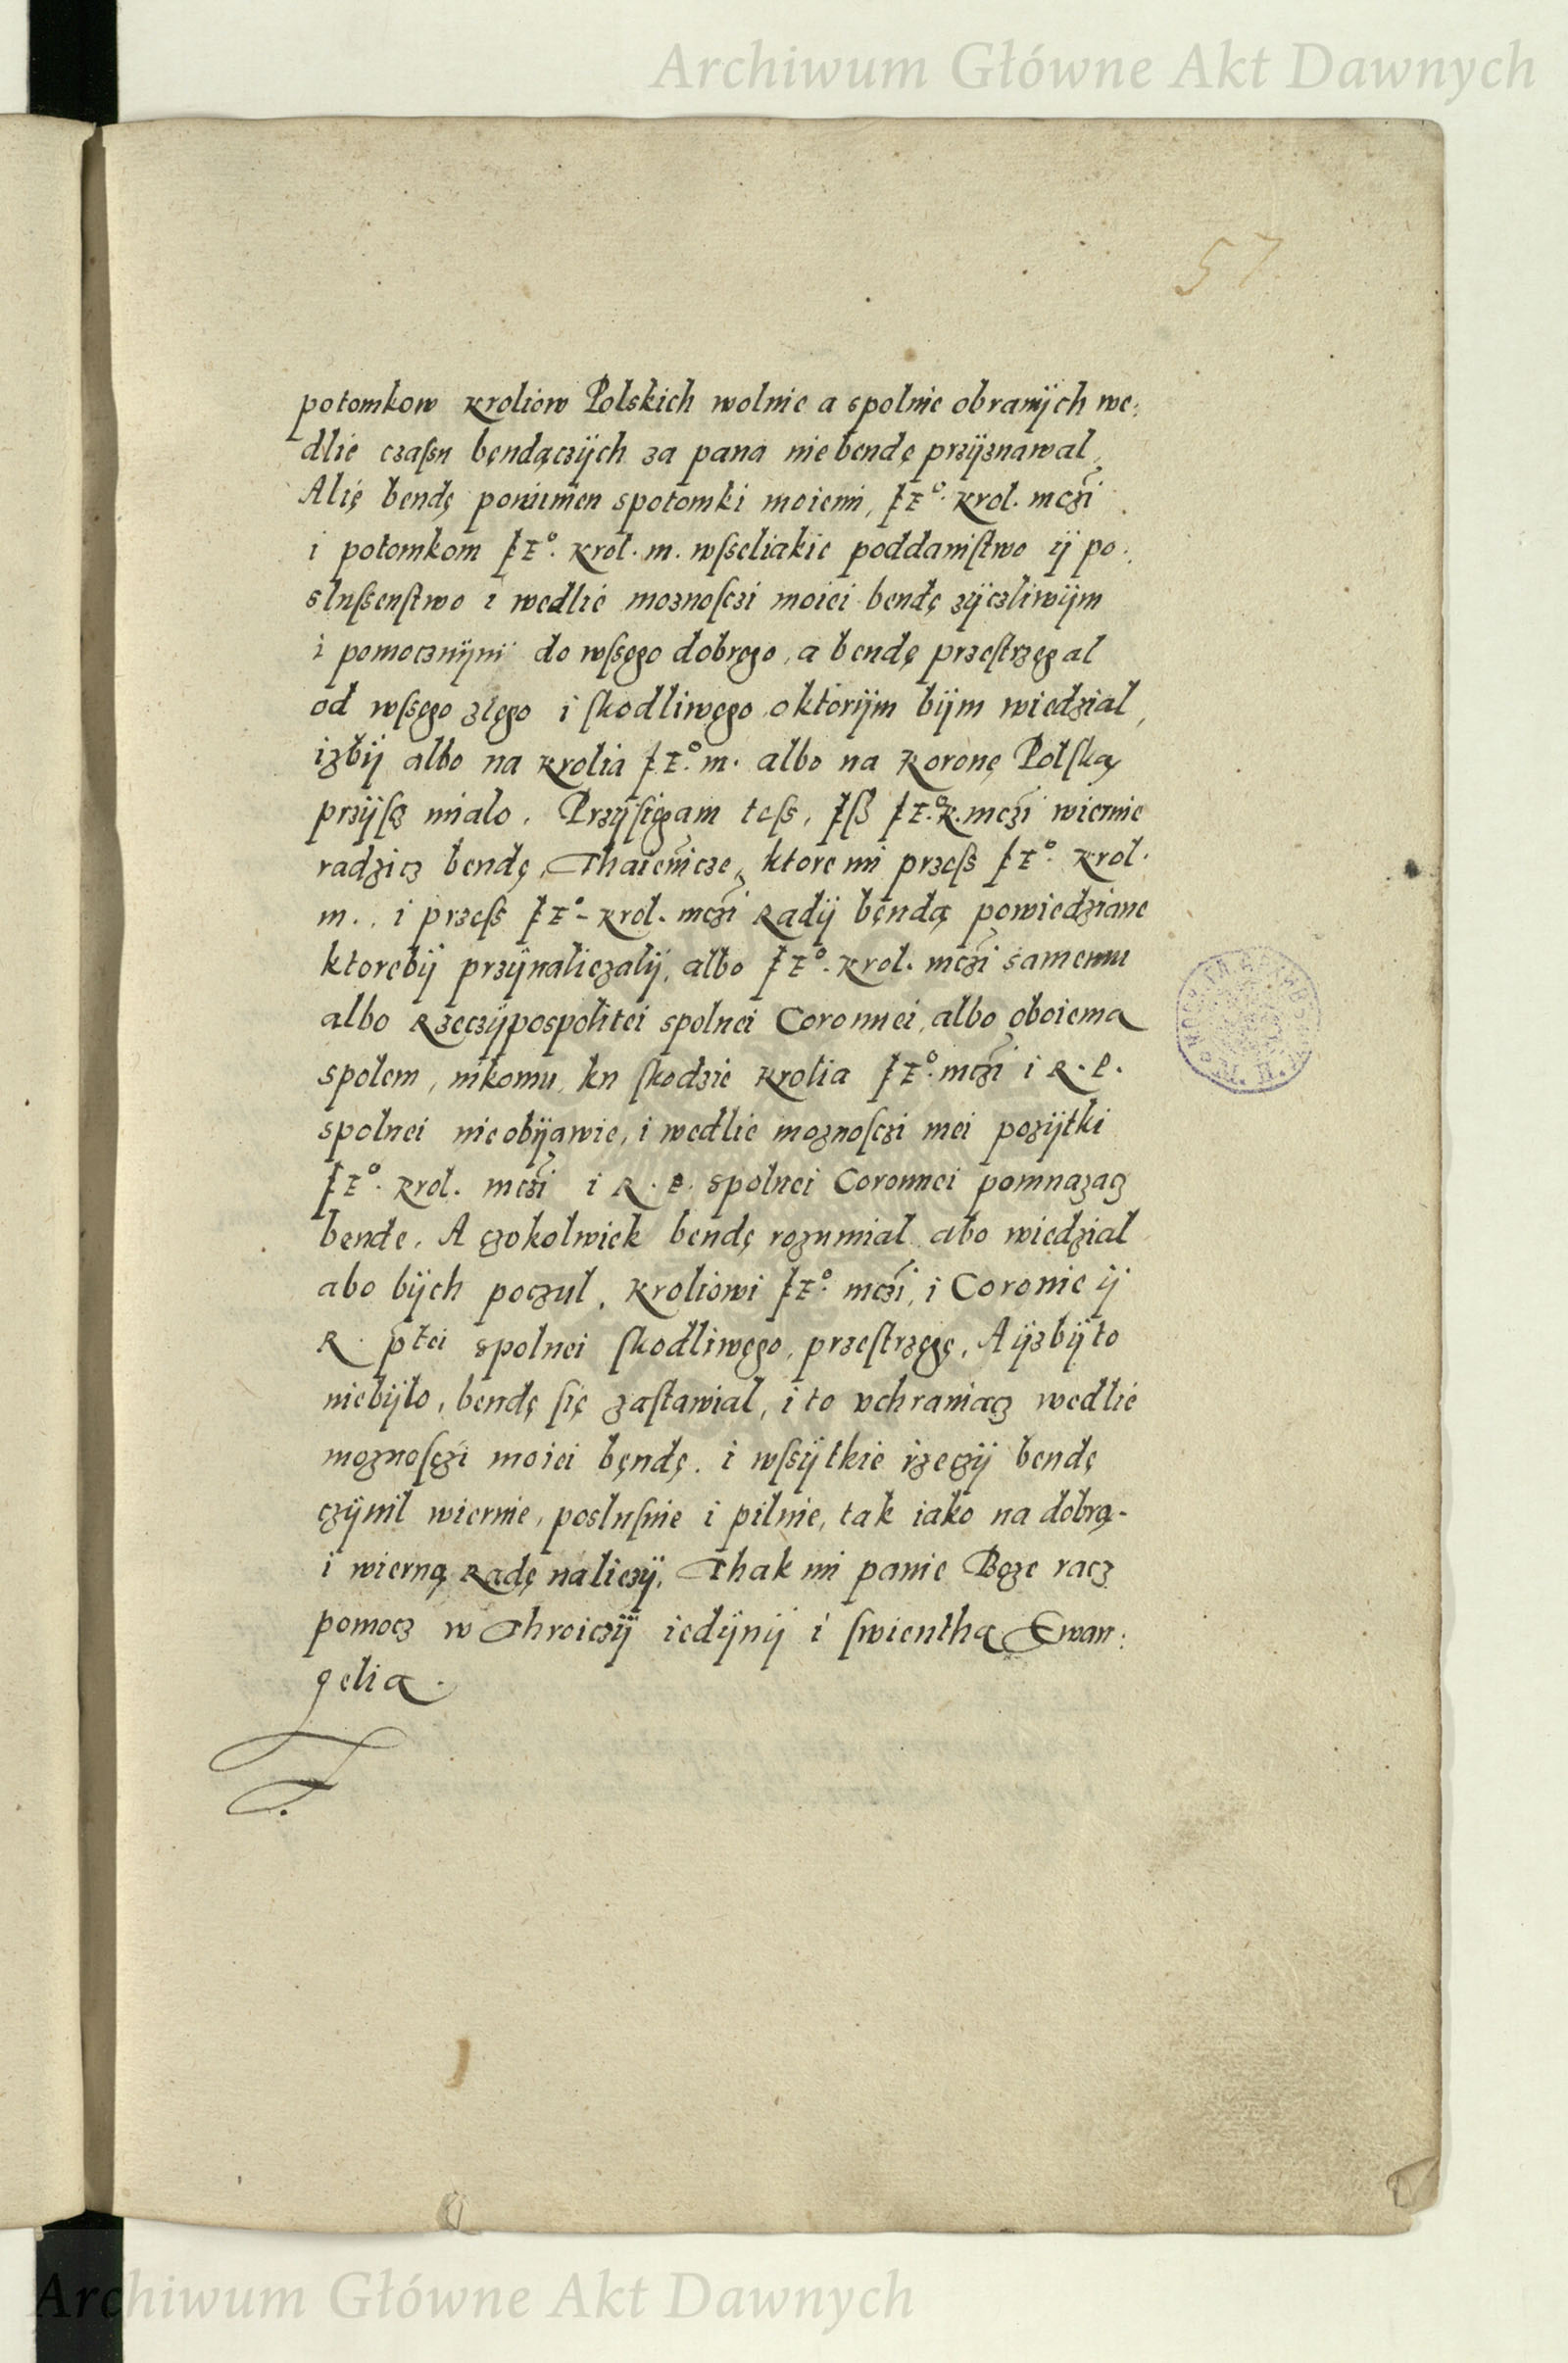 Archiwum Główne Akt Dawnych
57
potomkow kroliow Polskich wolnie a spolnie obranÿch we:
dlie czaſsu bęndączÿch za pana nie bendę przÿznawal,
Alię bendę powiimen spotomki moiemi, Jeᵒ. krol. mczi
i potomkom Jeᵒ. krol. m. wſseliakie poddaniſtwo ÿ po:
sluſsenſtwo i wedlie moznoſczi moiei bendę zÿczliwÿm
i pomocznÿm do wſsęgo dobręgo, a bendę przeſtrzęgal
od wſsęgo zlęgo i ſkodliwęgo oktorÿm bÿm wiedzial,
izbÿ albo na krolia Jeᵒ. m. albo na koronę Polſką
przÿſcz mialo. Przÿſięgam teſs, Jſß Jeᵒ. k. mczi wiernie
radzicz bendę, Thaiemicze, ktore mi przeſs Jeᵒ. krol.
m.. i przeſs Jeᵒ- krol. mczi Radÿ bęndą powiedziane
ktorebÿ przÿnaliezalÿ, albo Jeᵒ. krol. mczi samemu
albo Rzeczÿpospolitei spolnei Coronnei, albo oboiema
spolem, nikomu, ku ſkodzie krolia Jeᵒ. mczi i R. P.
spolnei nie obÿawie, i wedlie moznoſczi mei pozÿtki
Jeᵒ. krol. mczi i R. P. spolnei Coronnei pomnazacz
bende. A czokolwiek bendę rozumial abo wiedzial
abo bÿch poczul, kroliowi Jeᵒ. mczi, i Coronie ÿ
R. ptei spolnei ſkodliwęgo, przeſtrzęgę, A ÿzbÿ to
niebÿlo, bendę ſię zaſtawial, i to vchraniacz wedlie
moznoſczi moiei bęndę. i wſsÿtkie rzeczÿ bendę
czÿnil wiernie, posluſnie i pilnie, tak iako na dobrą-
i wierną Radę naliezÿ, Thak mi panie Boze racz
pomocz w Throiczÿ iedÿnÿ i ſwientha Ewan:
gelia.
Archiwum Główne Akt Dawnych